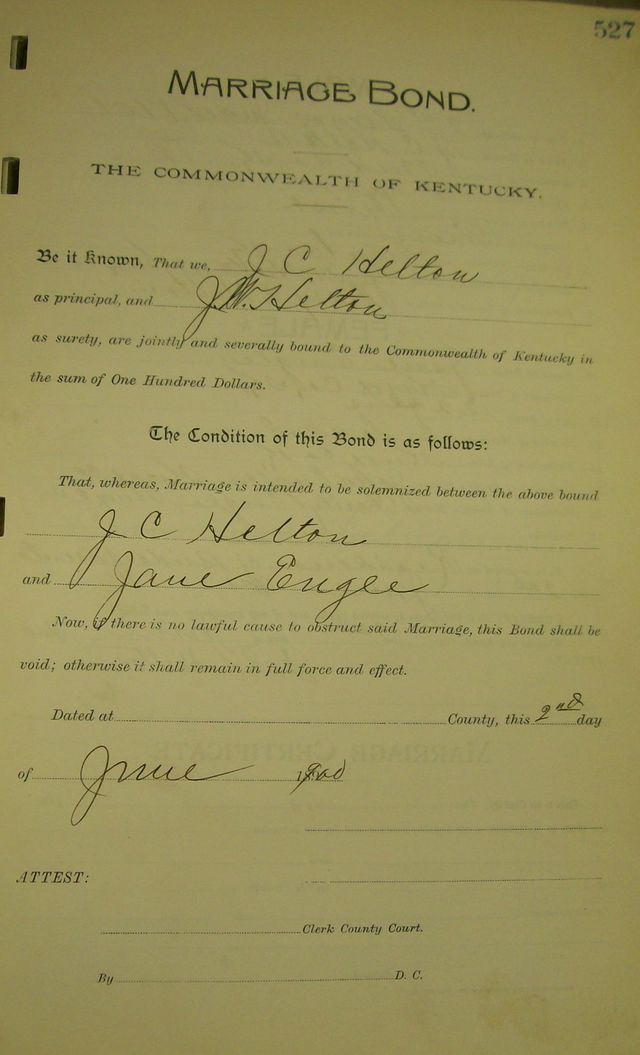 527
MARRIAGE BOND.
THE COMMONWEALTH OF KENTUCKY.
Be it Known, That we, J C Helton
as principal, and J.W. Helton
as surety, are jointly and severally bound to the Commonwealth of Kentucky in
the sum of One Hundred Dollars.
The Condition of this Bond is as follows:
That, whereas, Marriage is intended to be solemnized between the above bound
J C Helton
and Jane Engle
Now, if there is no lawful cause to obstruct said Marriage, this Bond shall be
void; otherwise it shall remain in full force and effect.
Dated at County, this 2nd day
of June 1900
ATTEST:
Clerk County Court.
By D. C.